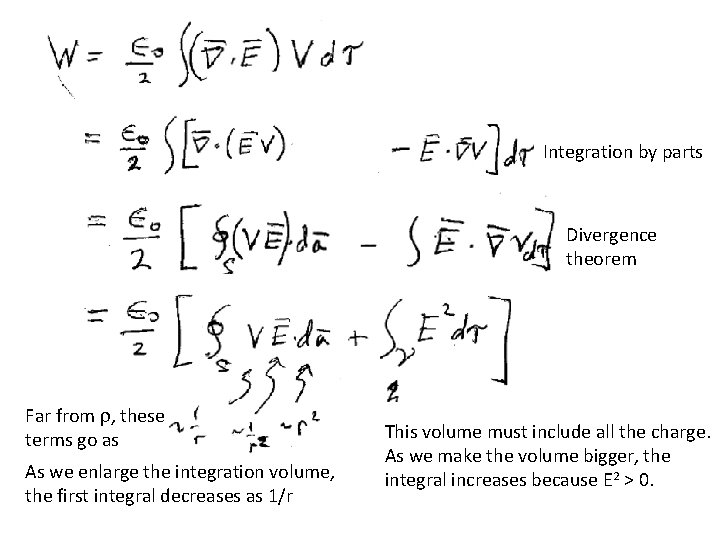 W = ε₀/2 ∫(∇̄·Ē) V dτ
= ε₀/2 ∫[∇̄·(ĒV) − Ē·∇̄V] dτ Integration by parts
= ε₀/2 [∮ₛ(VĒ)·dā − ∫ Ē·∇̄V dτ] Divergence
theorem
= ε₀/2 [∮ₛ VĒ·dā + ∫ᵥ E² dτ]
Far from ρ, these
terms go as ~1/r ~1/r² ~r²
As we enlarge the integration volume,
the first integral decreases as 1/r
This volume must include all the charge.
As we make the volume bigger, the
integral increases because E² > 0.